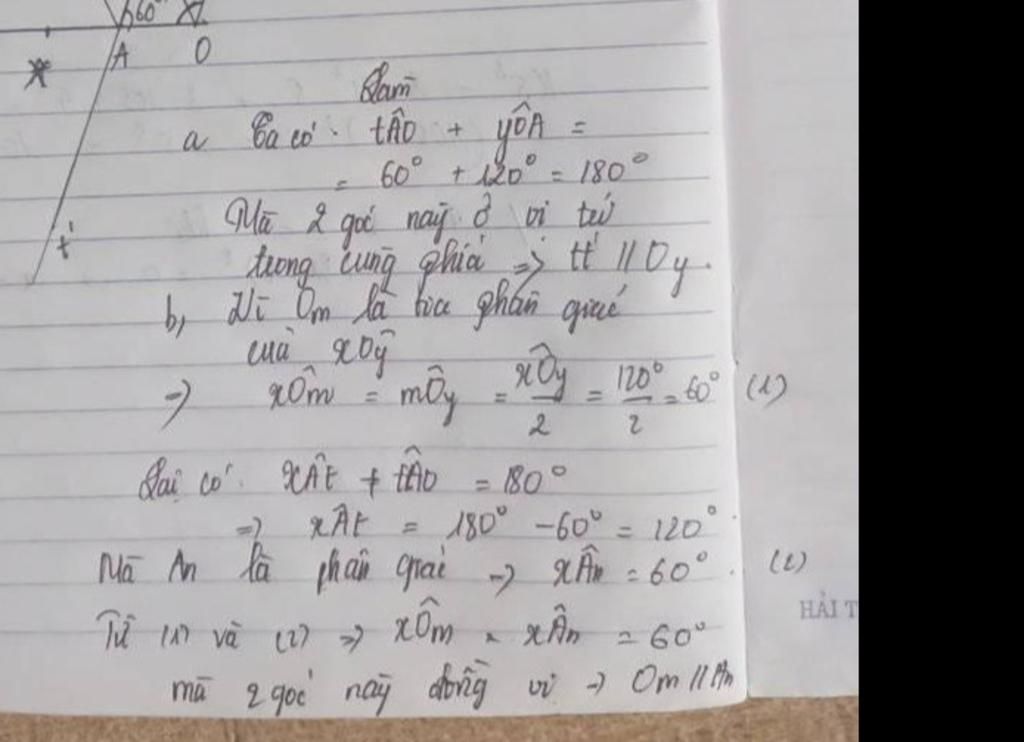 60°
A O
t'
Làm
a Ta có: tÂO + yÔA =
= 60° + 120° = 180°
Mà 2 góc này ở vị trí
trong cùng phía => tt' // Oy.
b, Vì Om là tia phân giác
của xOy
=> xÔm = mÔy = xÔy/2 = 120°/2 = 60° (1)
Lại có: xÂt + tÂO = 180°
=> xÂt = 180° - 60° = 120°
Mà An là phân giác -> xÂn = 60°. (2)
HẢI T
Từ (1) và (2) => xÔm = xÂn = 60°
mà 2 góc này đồng vị -> Om // An